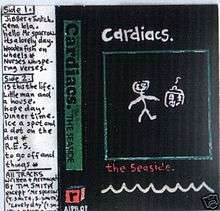 Side 1.
Jibber & Twitch.
Gena lola.
hello Mr. sparrow.
its a lovely day.
Wooden fish on
wheels.
Nurses whisp-
ering verses.
Side 2.
is this the life.
Little man and
a house.
hope day.
Dinner time.
ice a spot and
a dot on the
dog
R.E.S.
to go off and
things
All TRACKS
By Tim Smith
except
Cardiacs.
THE SEASIDE.
ALPHABET
Cardiacs.
the seaside.